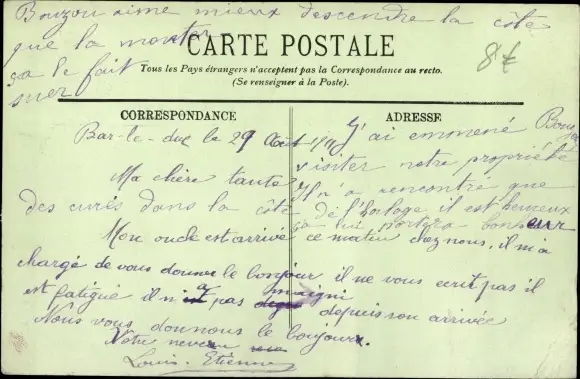 Bouzou aime mieux descendre la côte
que la monter
ça le fait
suer
8€
CARTE POSTALE
Tous les Pays étrangers n'acceptent pas la Correspondance au recto.
(Se renseigner à la Poste).
CORRESPONDANCE
Bar-le-duc le 29 Août
Ma chère tante
ADRESSE
J'ai emmené Bouzou
visiter notre propriété
Il n'a rencontré que
des curés dans la côte de l'horloge il est heureux
ça lui portera bonheur
Mon oncle est arrivé ce matin chez nous, il m'a
chargé de vous donner le bonjour il ne vous ecrit pas il
est fatigué il n'a pas maigri depuis son arrivée
Nous vous donnons le bonjour.
Votre neveu
Louis-Etienne